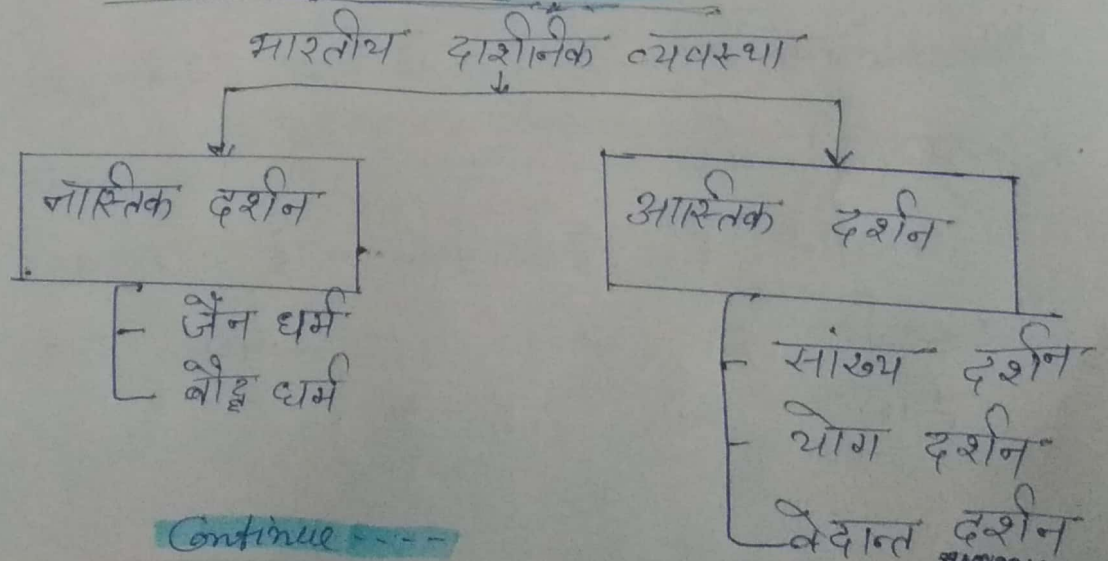 भारतीय दार्शनिक व्यवस्था
नास्तिक दर्शन
जैन धर्म
बौद्ध धर्म
आस्तिक दर्शन
सांख्य दर्शन
योग दर्शन
वेदान्त दर्शन
Continue ----